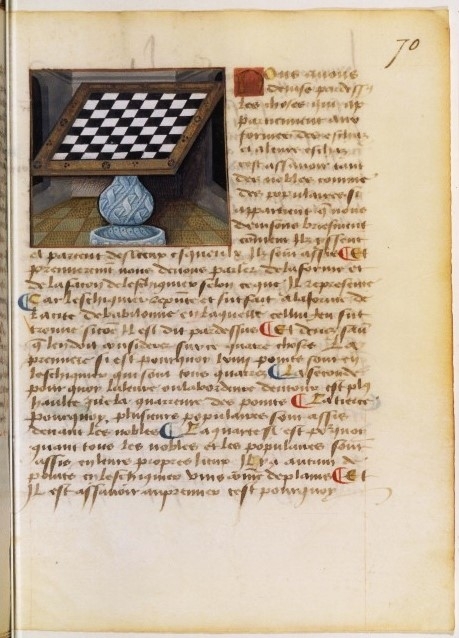 70
Nous avons
devise pardess
les choses qui ap
partiennent aux
formes des eschaz
et a leurs eschaz
cest assavoir tant
des nobles comme
des populaires si
appartient q nous
devisons briefment
comment Ilz yssent
et partent des lieux esquelz Ilz sont assis Et
premierement nous devons parler de la forme et
de la facon de leschiquier selon ce que Il represente
Car leschiquier repnte et fut fait a la forme de
la cite de babilonne en laquelle cellui ieu fut
trouve Il est dit par dessus Et devez
q len doit considerer sur ce quatre choses La
premiere si est pourquoy lxiiii points sont en
leschiquier qui sont tous quarrez La seconde
pour quoy la bordeure dentour est plus
haulte que la quarreure des points La tierce
pourquoy plusieurs populaires sont assis
devant les nobles La quarte si est porquoy
quant tous les nobles et les populaires sont
assis en leurs propres lieux Il y a autant de
points en leschiquier vuis come de plains Et
Il est assavoir au premier cest pourquoy